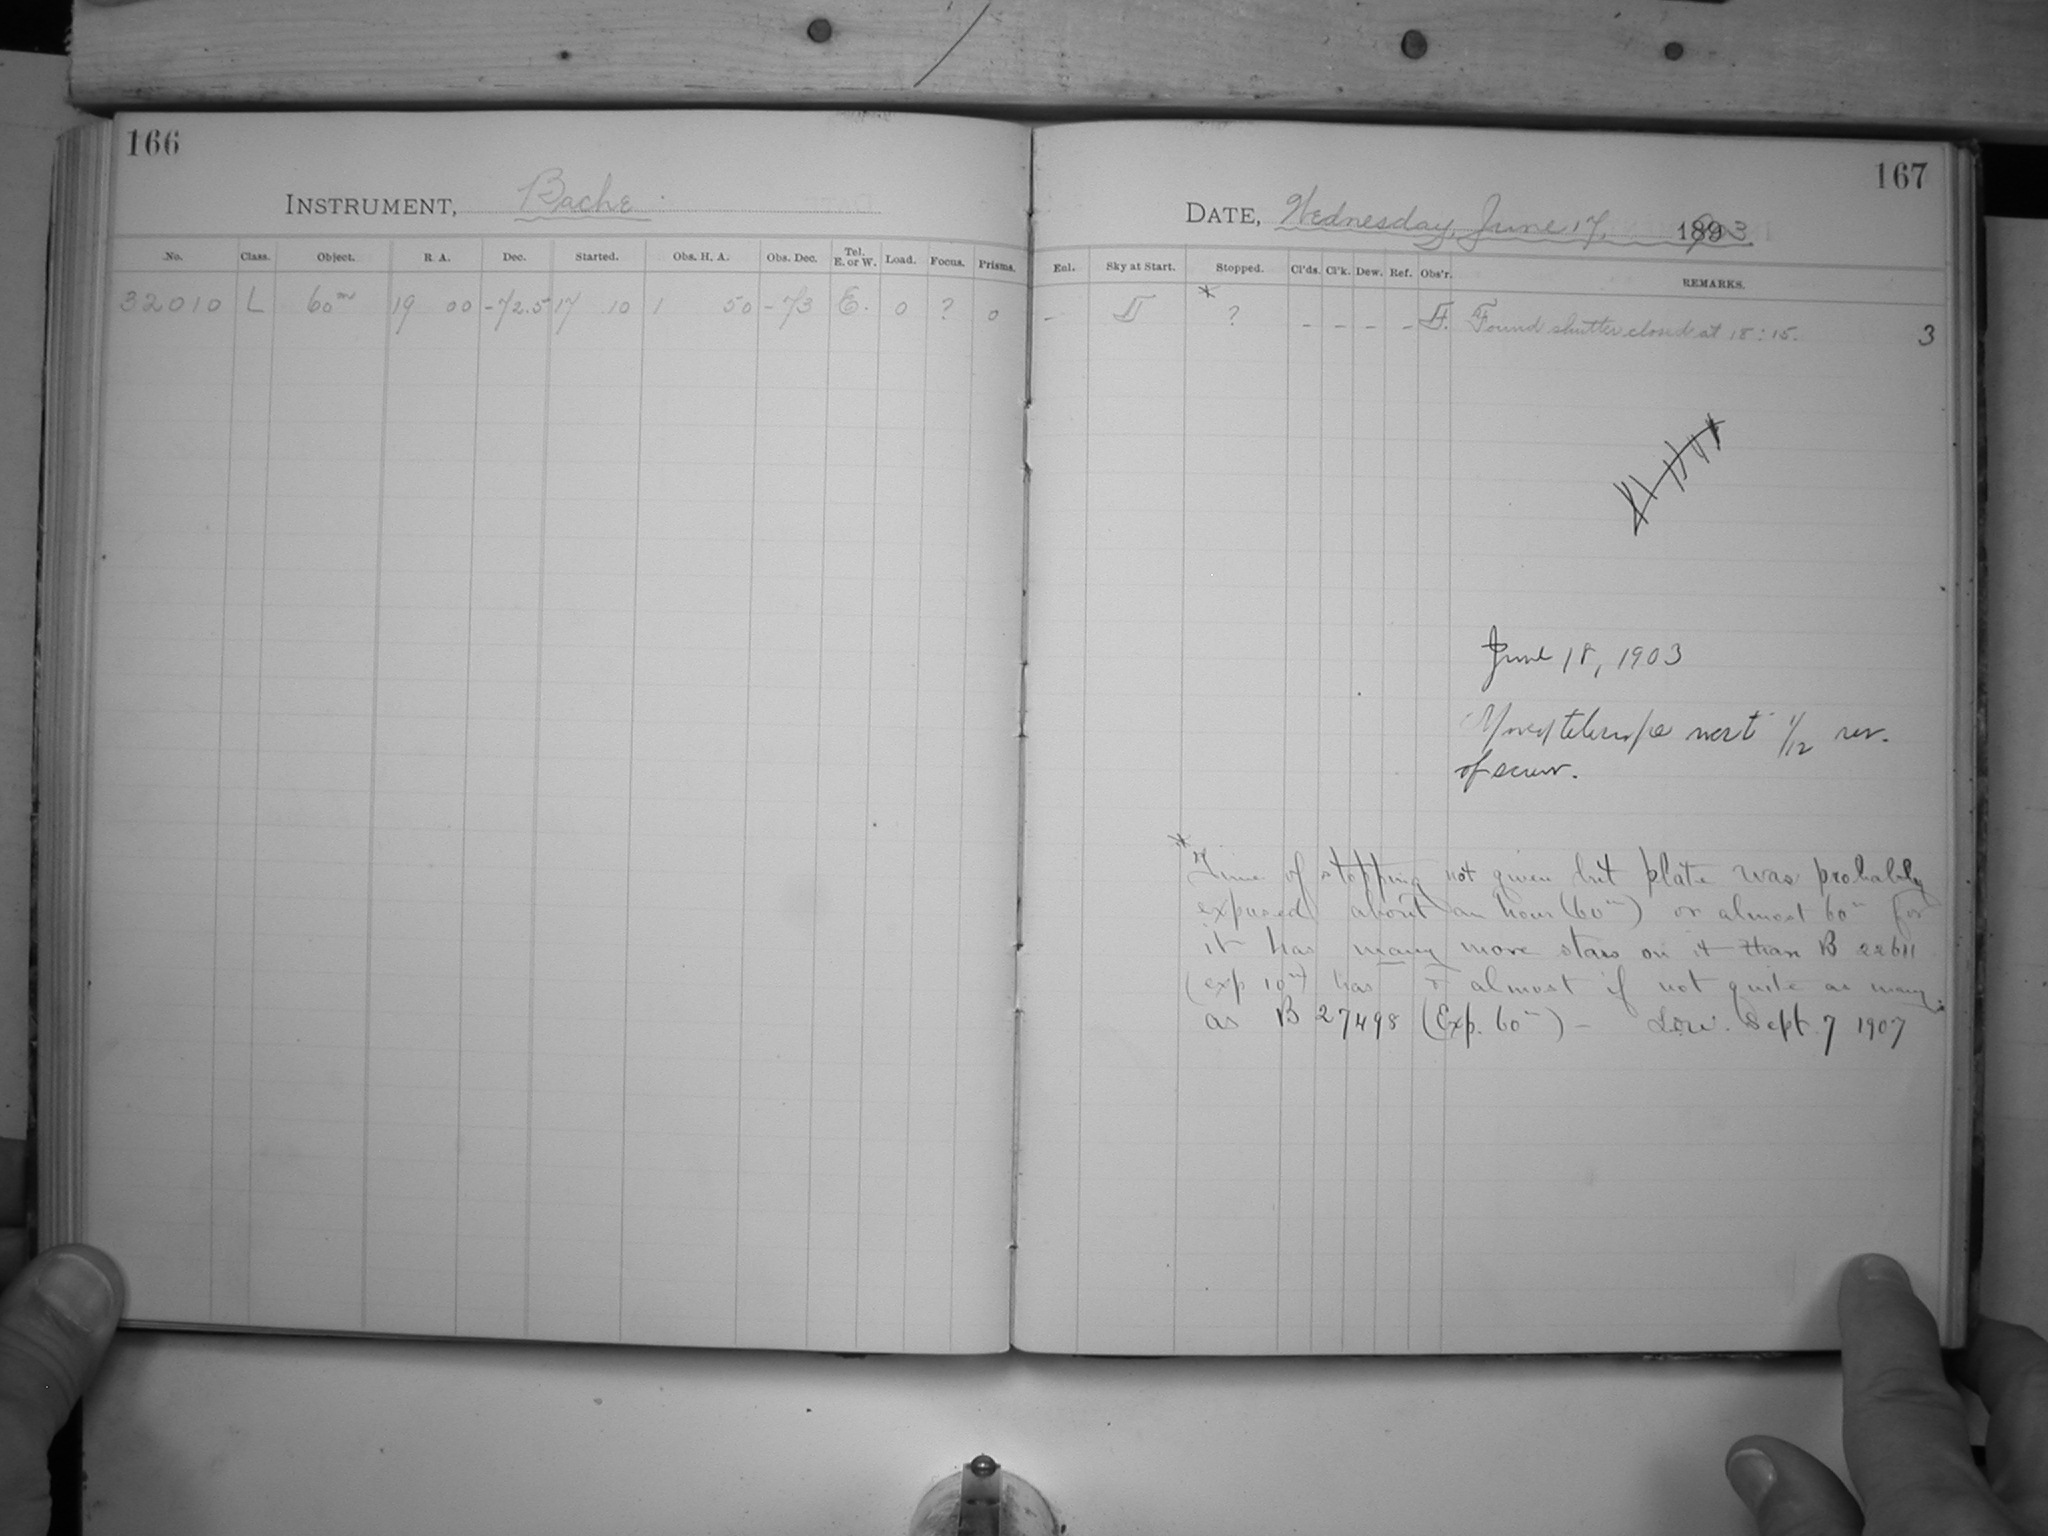 166
INSTRUMENT, Bache
No. Class. Object. R. A. Dec. Started. Obs. H. A. Obs. Dec. Tel. E. or W. Load. Focus. Prisms.
32010 L 60m 19 00 -72.5 17 10 1 50 -73 E. 0 ? 0
167
DATE, Wednesday, June 17, 1903
Enl. Sky at Start. Stopped. Cl'ds. Cl'k. Dew. Ref. Obs'r. REMARKS.
- * ? - - - - F. Found shutter closed at 18:15. 3
June 18, 1903
Moved telescope west 1/12 rev.
of screw.
* Time of stopping not given but plate was probably
exposed about an hour (60m) or almost 60m for
it has many more stars on it than B 22611
(exp 10m) has & almost if not quite as many
as B 27498 (Exp. 60m) - Sept. 7 1907